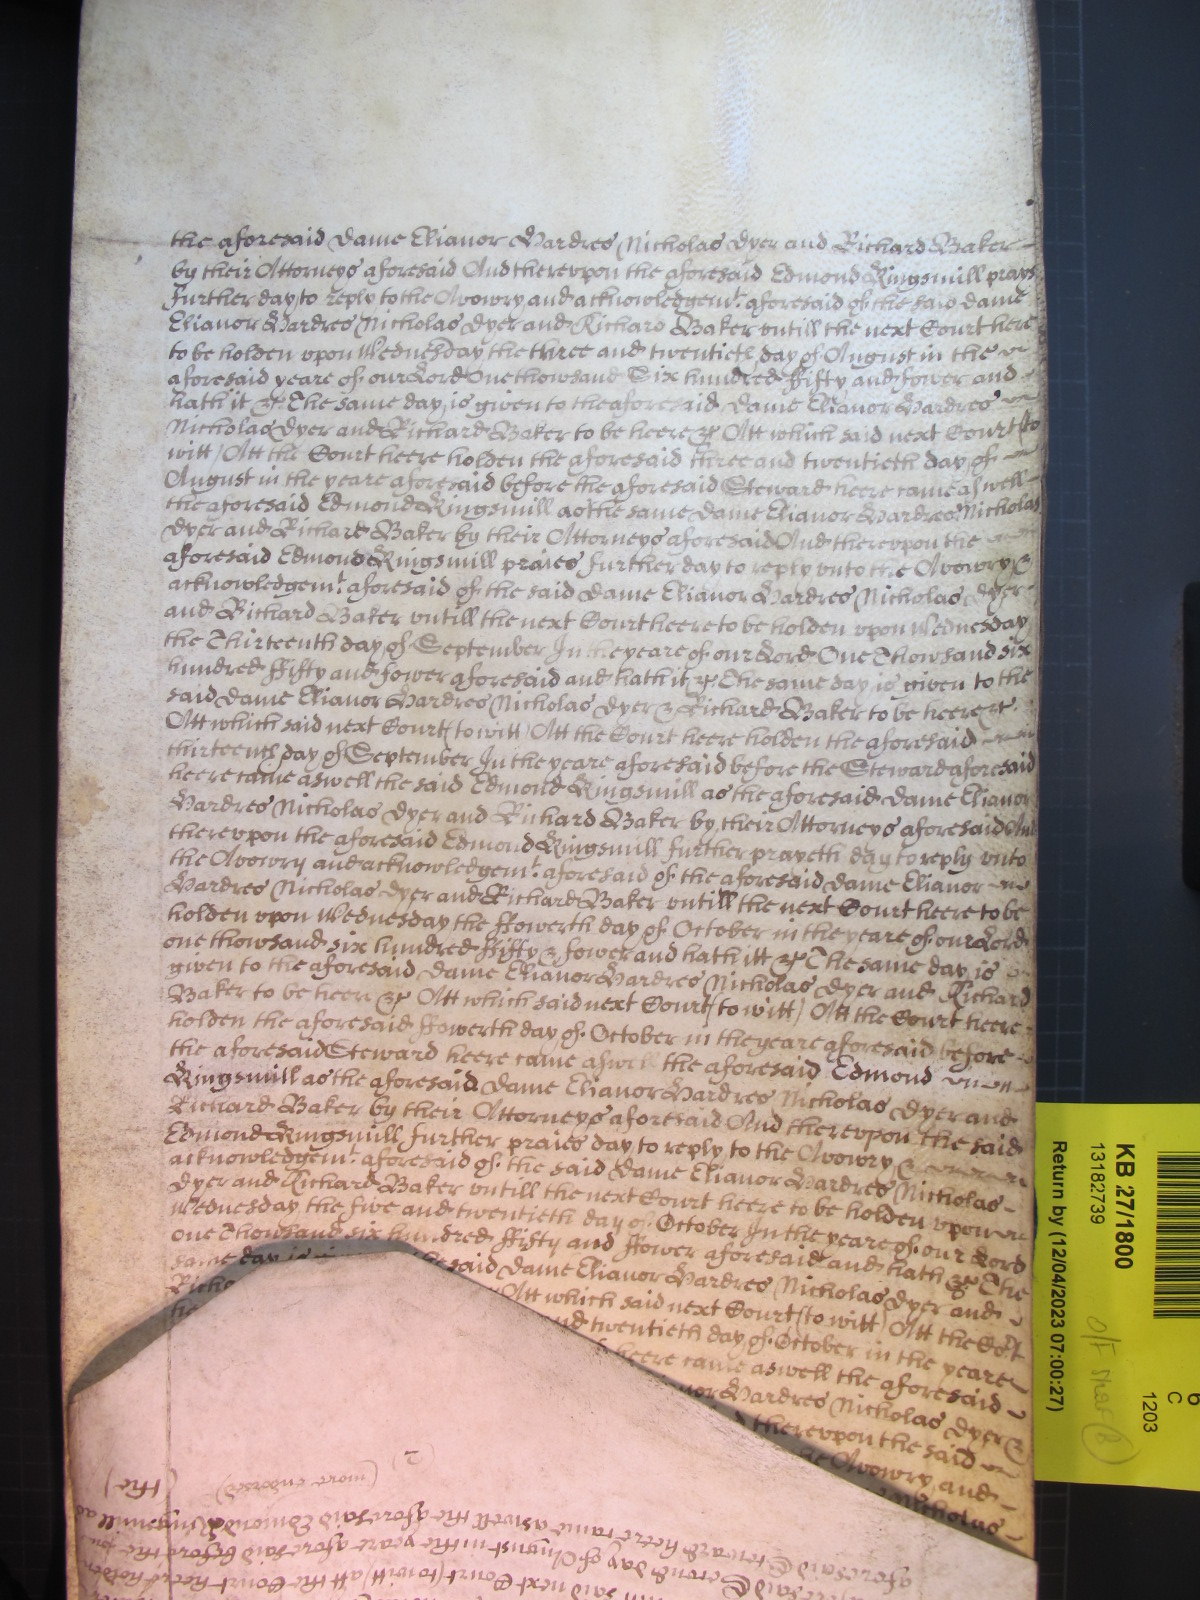 the aforesaid Dame Elianor Hardres Nicholas Dyer and Richard Baker
by their Attorneys aforesaid And therevpon the aforesaid Edmond Kingsmill prays
further day to reply to the Avowry and acknowledgemt. aforesaid of the said Dame
Elianor Hardres Nicholas Dyer and Richard Baker vntill the next Court here
to be holden vpon Wednesday the three and twentieth day of August in the
aforesaid yeare of our Lord One thowsand Six hundred ffifty and fower and
hath it &c The same day is given to the aforesaid Dame Elianor Hardres
Nicholas Dyer and Richard Baker to be heere &c Att which said next Court (to
witt) Att the Court heere holden the aforesaid three and twentieth day of
August in the yeare aforesaid before the aforesaid Steward heere came aswell
the aforesaid Edmond Kingsmill as the same Dame Elianor Hardres Nicholas
Dyer and Richard Baker by their Attorneys aforesaid And therevpon the
aforesaid Edmond Kingsmill praies further day to reply vnto the Avowry &
acknowledgemt. aforesaid of the said Dame Elianor Hardres Nicholas Dyer
and Richard Baker vntill the next Court heere to be holden vpon Wednesday
the Thirteenth day of September In the yeare of our Lord One Thowsand six
hundred ffifty and fower aforesaid and hath it &c The same day is given to the
said Dame Elianor Hardres Nicholas Dyer & Richard Baker to be heere &c
Att which said next Court (to witt) Att the Court heere holden the aforesaid
thirteenth day of September In the yeare aforesaid before the Steward aforesaid
heere came aswell the said Edmond Kingsmill as the aforesaid Dame Elianor
Hardres Nicholas Dyer and Richard Baker by their Attorneys aforesaid And
therevpon the aforesaid Edmond Kingsmill further prayeth day to reply vnto
the Avowry and acknowledgemt. aforesaid of the aforesaid Dame Elianor
Hardres Nicholas Dyer and Richard Baker vntill the next Court heere to be
holden vpon Wednesday the ffowerth day of October in the yeare of our Lord
one thowsand six hundred ffifty & fower and hath itt &c The same day is
given to the aforesaid Dame Elianor Hardres Nicholas Dyer and Richard
Baker to be heere &c Att which said next Court (to witt) Att the Court heere
holden the aforesaid ffowerth day of October in the yeare aforesaid before
the aforesaid Steward heere came aswell the aforesaid Edmond
Kingsmill as the aforesaid Dame Elianor Hardres Nicholas Dyer and
Richard Baker by their Attorneys aforesaid And therevpon the said
Edmond Kingsmill further praies day to reply to the Avowry &
acknowledgemt. aforesaid of the said Dame Elianor Hardres Nicholas
Dyer and Richard Baker vntill the next Court heere to be holden vpon
Wednesday the five and twentieth day of October In the yeare of our Lord
one Thowsand six hundred ffifty and ffower aforesaid and hath &c The
same day is said Dame Elianor Hardres Nicholas Dyer and
Att which said next Court (to witt) Att the Cort
twentieth day of October in the yeare
heere came aswell the aforesaid
Hardres Nicholas Dyer &
therevpon the said
Avowry and
Nicholas
(the)
(more engrosed)
2)
aforesaid Steward heere came aswell the aforesaid Edmond Kingsmill as
day of August in the yeare aforesaid before the
said next Court (to witt) att the Court heere holden
KB 27/1800
13182739
Return by (12/04/2023 07:00:27)
6
C
1203